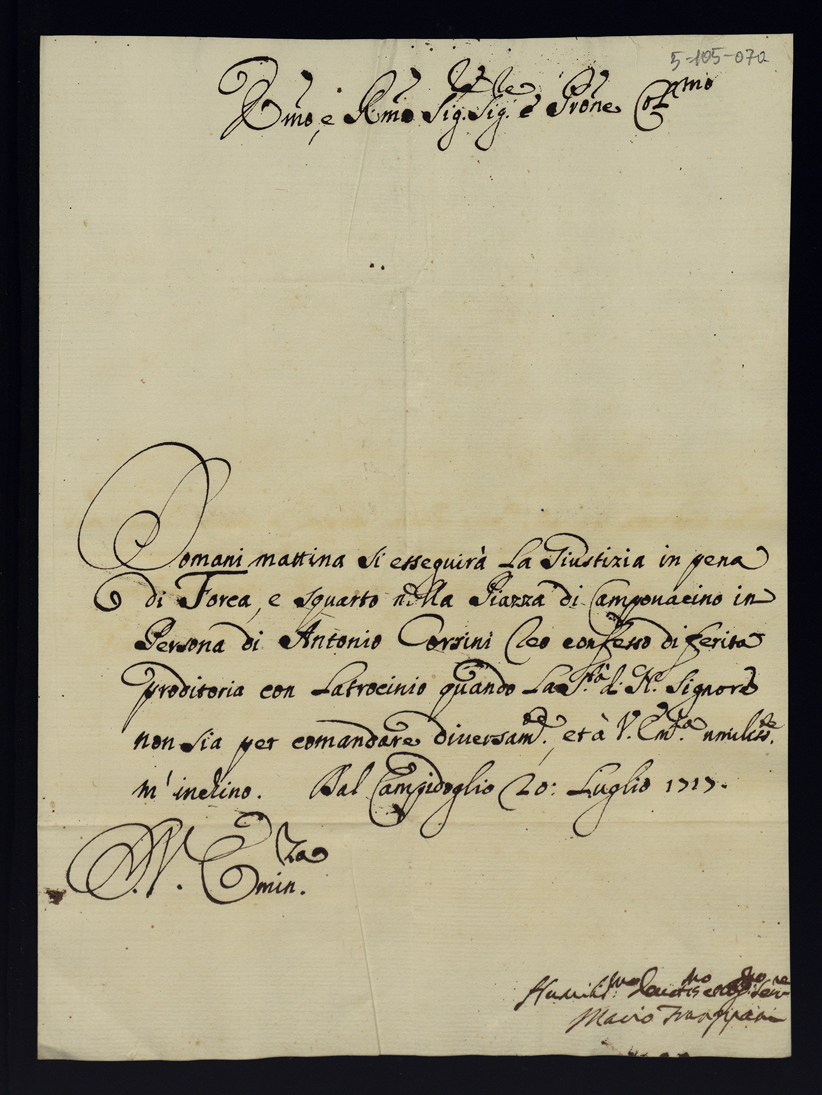 5-105-072
E.mo, e R.mo Sig. Sig. e Prone Col.mo
Domani mattina si esseguirà La Giustizia in pena
di Forca, e squarto nella Piazza di Campouacino in
Persona di Antonio Corsini Reo confesso di ferita
proditoria con Latrocinio quando La S.tà di N.ro Signore
non sia per comandare diversam.te, et à V. Em.za umiliss.te
m' inchino. Dal Campidoglio 20: Luglio 1717.
D. V. Emin.za
Humiliss.mo Deuotis.mo Oblig.mo Ser.re
Mario Frangipani